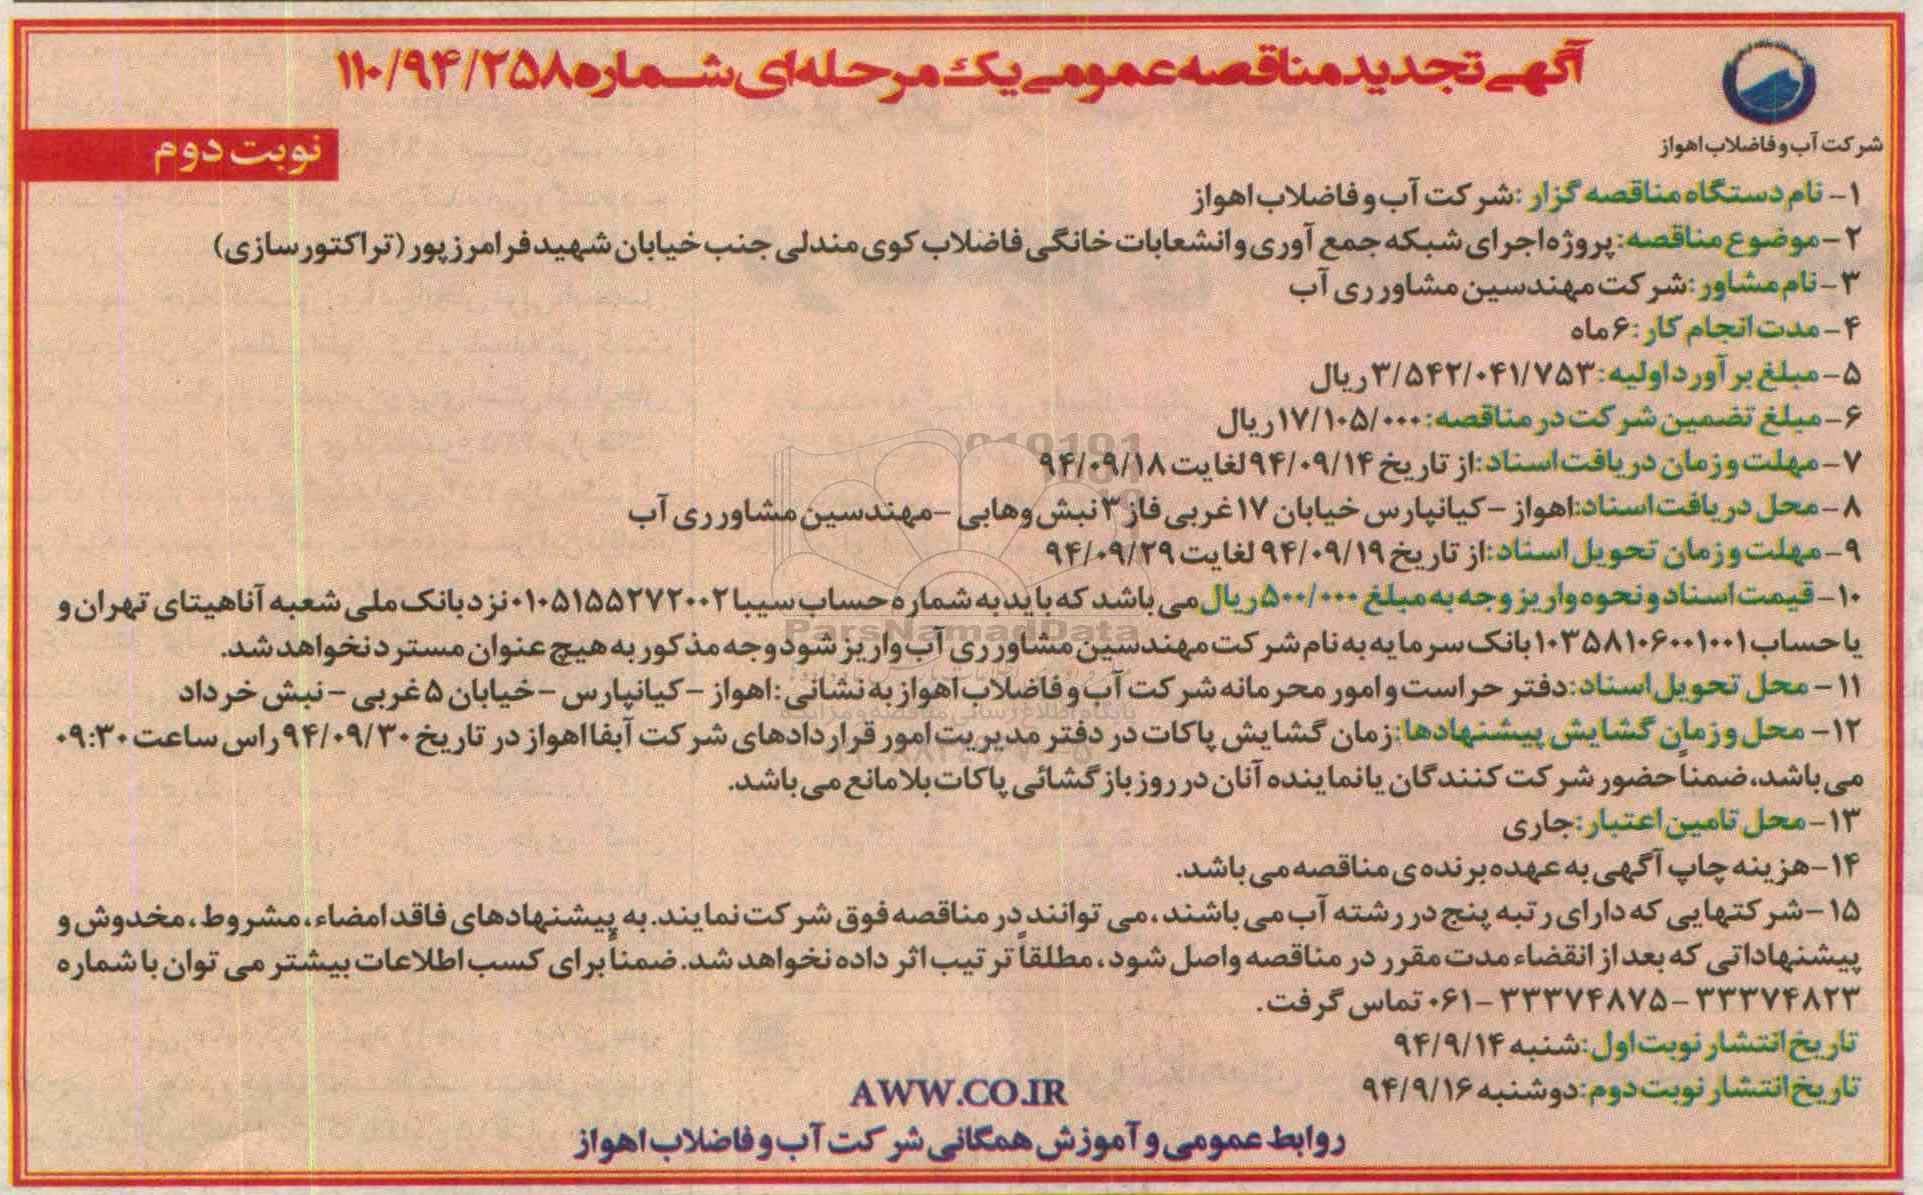 آگهی تجدید مناقصه عمومی یک مرحله ای شماره ۱۱۰/۹۴/۲۵۸
شرکت آب و فاضلاب اهواز
نوبت دوم
۱- نام دستگاه مناقصه گزار: شرکت آب و فاضلاب اهواز
۲- موضوع مناقصه: پروژه اجرای شبکه جمع آوری و انشعابات خانگی فاضلاب کوی مندلی جنب خیابان شهید فرامرزپور (تراکتورسازی)
۳- نام مشاور: شرکت مهندسین مشاور ری آب
۴- مدت انجام کار: ۶ ماه
۵- مبلغ برآورد اولیه: ۳/۵۴۲/۰۴۱/۷۵۳ ریال
۶- مبلغ تضمین شرکت در مناقصه: ۱۷/۱۰۵/۰۰۰ ریال
۷- مهلت و زمان دریافت اسناد: از تاریخ ۹۴/۰۹/۱۴ لغایت ۹۴/۰۹/۱۸
۸- محل دریافت اسناد: اهواز - کیانپارس خیابان ۱۷ غربی فاز ۳ نبش وهابی - مهندسین مشاور ری آب
۹- مهلت و زمان تحویل اسناد: از تاریخ ۹۴/۰۹/۱۹ لغایت ۹۴/۰۹/۲۹
۱۰- قیمت اسناد و نحوه واریز وجه به مبلغ ۵۰۰/۰۰۰ ریال می باشد که باید به شماره حساب سیبا ۰۱۰۵۱۵۵۲۷۲۰۰۲ نزد بانک ملی شعبه آناهیتای تهران و
یا حساب ۱۰۳۵۸۱۰۶۰۰۱۰۰۱ بانک سرمایه به نام شرکت مهندسین مشاور ری آب واریز شود وجه مذکور به هیچ عنوان مسترد نخواهد شد.
۱۱- محل تحویل اسناد: دفتر حراست و امور محرمانه شرکت آب و فاضلاب اهواز به نشانی: اهواز - کیانپارس - خیابان ۵ غربی - نبش خرداد
۱۲- محل و زمان گشایش پیشنهادها: زمان گشایش پاکات در دفتر مدیریت امور قراردادهای شرکت آبفا اهواز در تاریخ ۹۴/۰۹/۳۰ راس ساعت ۰۹:۳۰
می باشد، ضمناً حضور شرکت کنندگان یا نماینده آنان در روز بازگشائی پاکات بلامانع می باشد.
۱۳- محل تامین اعتبار: جاری
۱۴- هزینه چاپ آگهی به عهده برنده ی مناقصه می باشد.
۱۵- شرکتهایی که دارای رتبه پنج در رشته آب می باشند، می توانند در مناقصه فوق شرکت نمایند. به پیشنهادهای فاقد امضاء، مشروط، مخدوش و
پیشنهاداتی که بعد از انقضاء مدت مقرر در مناقصه واصل شود، مطلقاً ترتیب اثر داده نخواهد شد. ضمناً برای کسب اطلاعات بیشتر می توان با شماره
۳۳۳۷۴۸۲۳ - ۳۳۳۷۴۸۷۵ - ۰۶۱ تماس گرفت.
تاریخ انتشار نوبت اول: شنبه ۹۴/۹/۱۴
تاریخ انتشار نوبت دوم: دوشنبه ۹۴/۹/۱۶
AWW.CO.IR
روابط عمومی و آموزش همگانی شرکت آب و فاضلاب اهواز
ParsNamadData